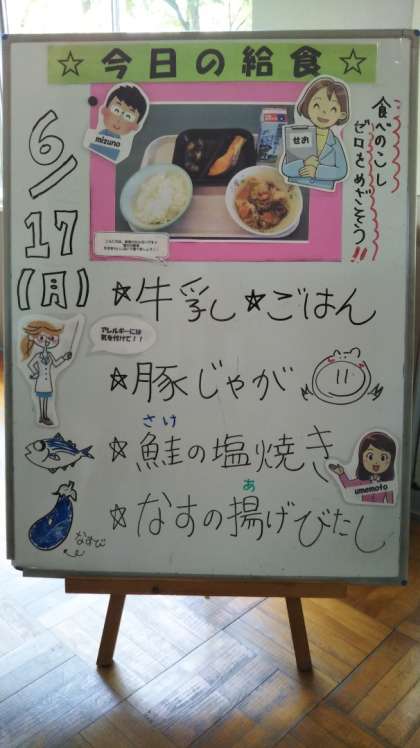 ☆今日の給食☆
mizuno
せお
食べのこし
ゼロをめざそう!!
6/17(月)
アレルギーには
気を付けて!!
☆牛乳☆ごはん
☆豚じゃが
さけ
☆鮭の塩焼き
umemoto
あ
☆なすの揚げびたし
なすび